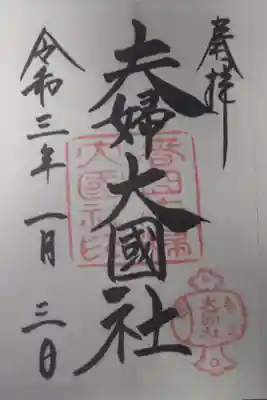 奉拝
夫婦大國社
令和三年一月三日
春日夫婦
大國社印
大國社